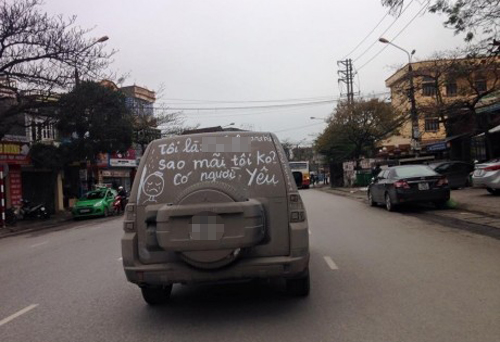 Tôi là:
sao mãi tôi ko?
Có người Yêu